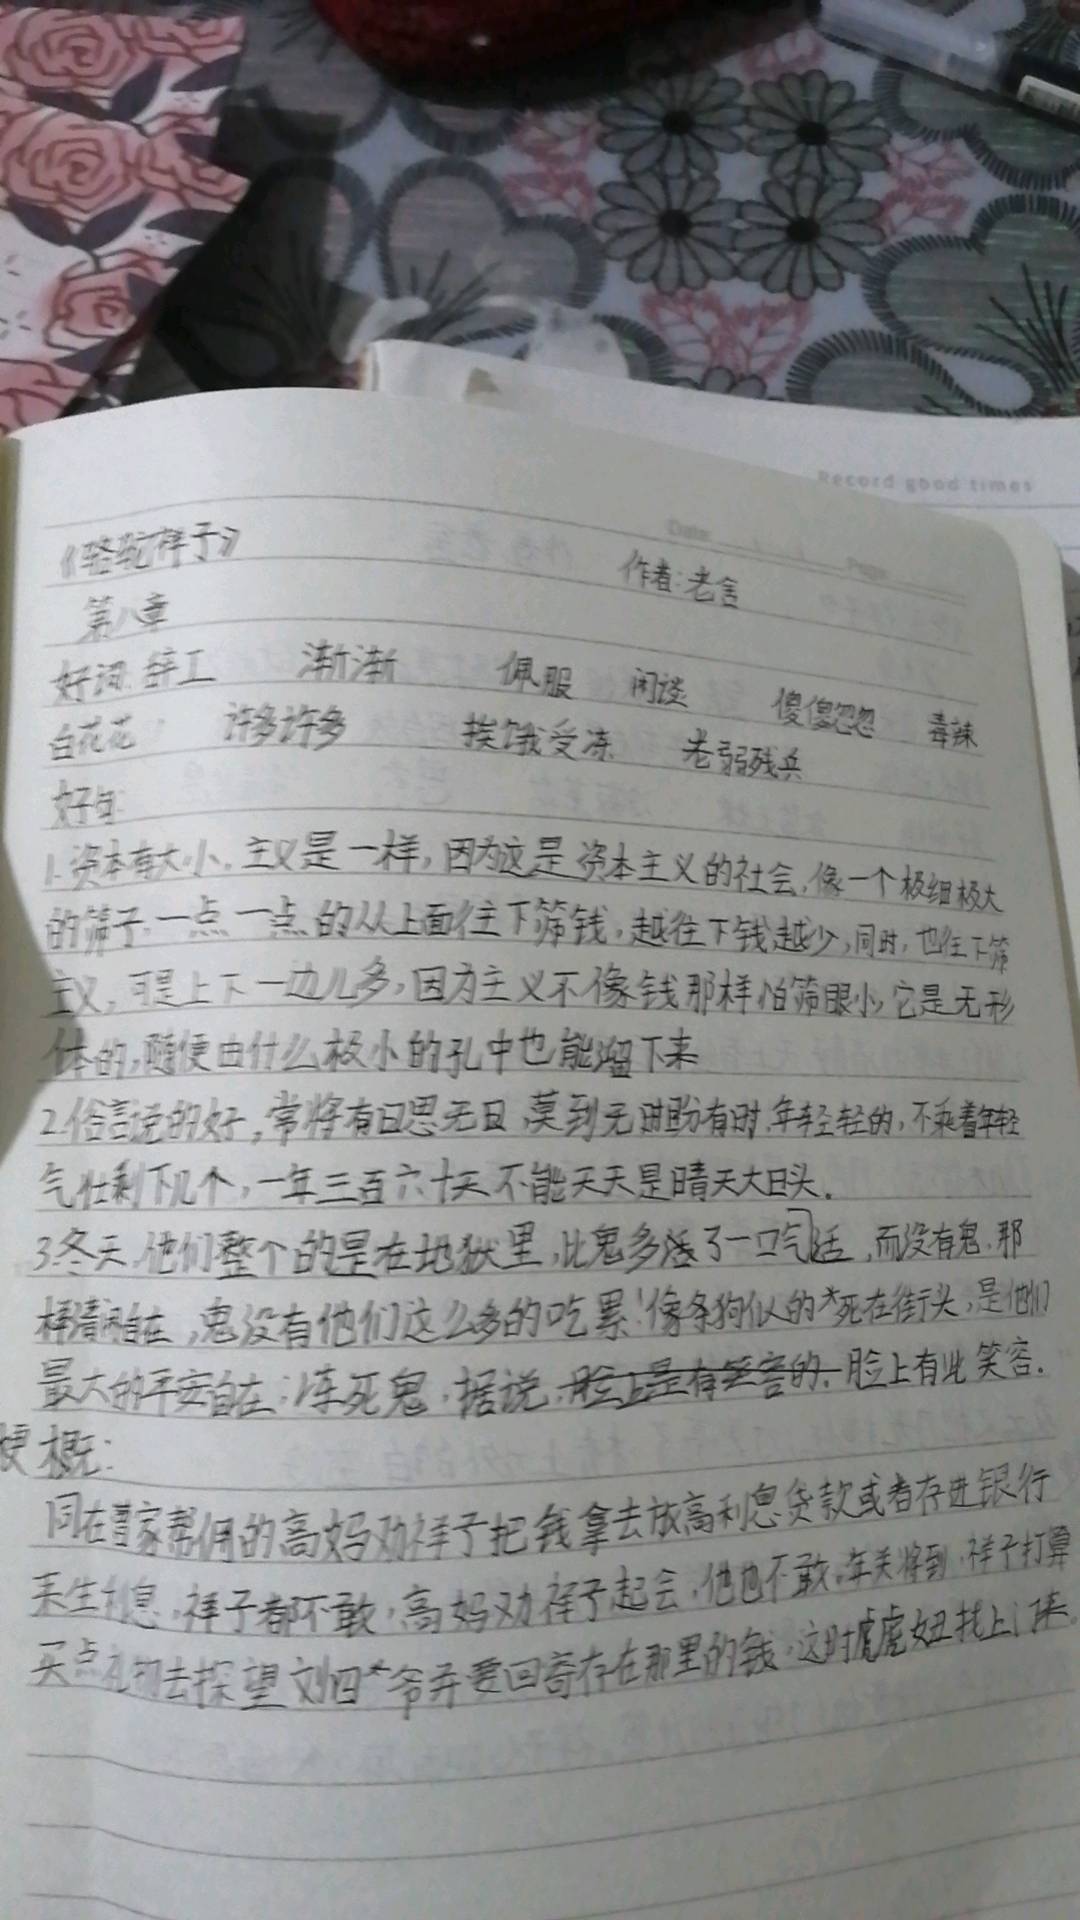 Record good times
Date: Page:
《骆驼祥子》 作者:老舍
第八章
好词: 辞工 渐渐 佩服 闲谈 傻傻忽忽 毒辣
白花花 许多许多 挨饿受冻 老弱残兵
好句:
1.资本有大小,主义是一样,因为这是资本主义的社会,像一个极细极大
的筛子,一点一点的从上面往下筛钱,越往下钱越少,同时,也往下筛
主义,可是上下一边儿多,因为主义不像钱那样怕筛眼小,它是无形
体的,随便由什么极小的孔中也能溜下来
2.俗言说的好,常将有日思无日,莫到无时盼有时.年轻轻的,不乘着年轻
气壮剩下几个,一年三百六十天不能天天是晴天大日头.
3.冬天,他们整个的是在地狱里,比鬼多了一口气活,而没有鬼那
样清闲自在,鬼没有他们这么多的吃累!像条狗似的死在街头,是他们
最大的平安自在;冻死鬼,据说,脸上是有笑容的.脸上有些笑容.
梗概:
同在曹家帮佣的高妈劝祥子把钱拿去放高利息贷款或者存进银行
来生利息,祥子都不敢,高妈劝祥子起会,他也不敢.年关将到,祥子打算
买点礼物去探望刘四爷并要回寄存在那里的钱,这时虎虎妞找上门来.